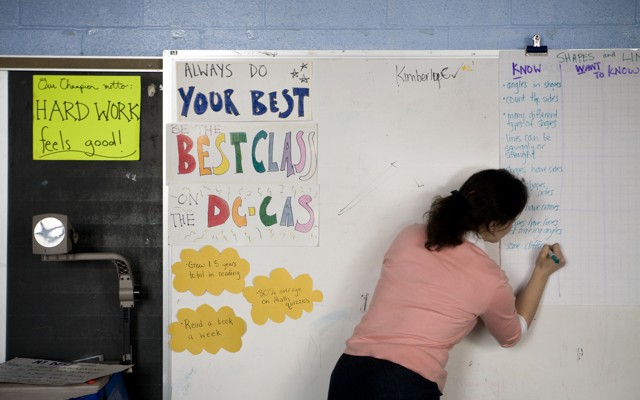 Our Champion motto:
HARD WORK
feels good!
ALWAYS DO
YOUR BEST
BE THE
BEST CLASS
ON
THE DC-CAS
Grow 1.5 years
in reading
80% average
on Math
quizzes
Read a book
a week
Kimberly
SHAPES and LIN
KNOW
angles in shapes
count the sides
many different
types of shapes
lines can be
squiggly or
straight
shapes have sides
WANT
TO KNOW